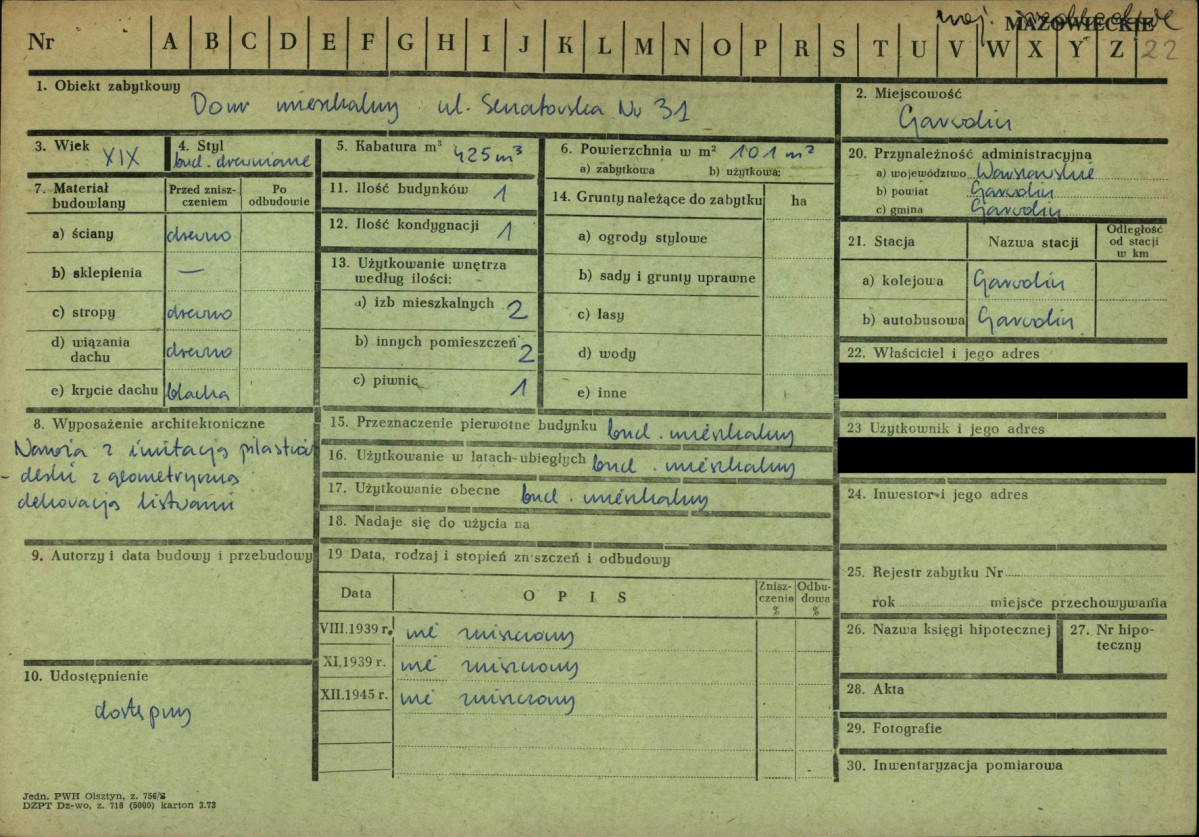 woj. siedleckie
MAZOWIECKIE
Nr A B C D E F G H I J K L M N O P R S T U V W X Y Z 22
1. Obiekt zabytkowy
Dom mieszkalny ul. Senatorska Nr 31
2. Miejscowość
Garwolin
3. Wiek XIX
4. Styl
bud. drewniane
5. Kabatura m³ 425 m³
6. Powierzchnia w m² 101 m²
a) zabytkowa b) użytkowa:
20. Przynależność administracyjna
a) województwo Warszawskie
b) powiat Garwolin
c) gmina Garwolin
7. Materiał budowlany
Przed zniszczeniem
Po odbudowie
a) ściany drewno
b) sklepienia —
c) stropy drewno
d) wiązania dachu drewno
e) krycie dachu blacha
11. Ilość budynków 1
12. Ilość kondygnacji 1
13. Użytkowanie wnętrza
według ilości:
a) izb mieszkalnych 2
b) innych pomieszczeń 2
c) piwnic 1
14. Grunty należące do zabytku ha
a) ogrody stylowe
b) sady i grunty uprawne
c) lasy
d) wody
e) inne
21. Stacja Nazwa stacji
Odległość
od stacji
w km
a) kolejowa Garwolin
b) autobusowa Garwolin
22. Właściciel i jego adres
23 Użytkownik i jego adres
24. Inwestor i jego adres
8. Wyposażenie architektoniczne
Naroża z imitacją pilastrów
- deski z geometryczną
dekoracją listwami
15. Przeznaczenie pierwotne budynku bud. mieszkalny
16. Użytkowanie w latach ubiegłych bud. mieszkalny
17. Użytkowanie obecne bud. mieszkalny
18. Nadaje się do użycia na
9. Autorzy i data budowy i przebudowy
19 Data, rodzaj i stopień zniszczeń i odbudowy
Data
OPIS
Zniszczenia %
Odbudowa %
VIII.1939 r. nie zniszczony
XI.1939 r. nie zniszczony
XII.1945 r. nie zniszczony
10. Udostępnienie
dostępny
25. Rejestr zabytku Nr
rok miejsce przechowywania
26. Nazwa księgi hipotecznej
27. Nr hipoteczny
28. Akta
29. Fotografie
30. Inwentaryzacja pomiarowa
Jedn. PWH Olsztyn, z. 756/S
DZPT Dz-wo, z. 718 (5000) karton 3.73